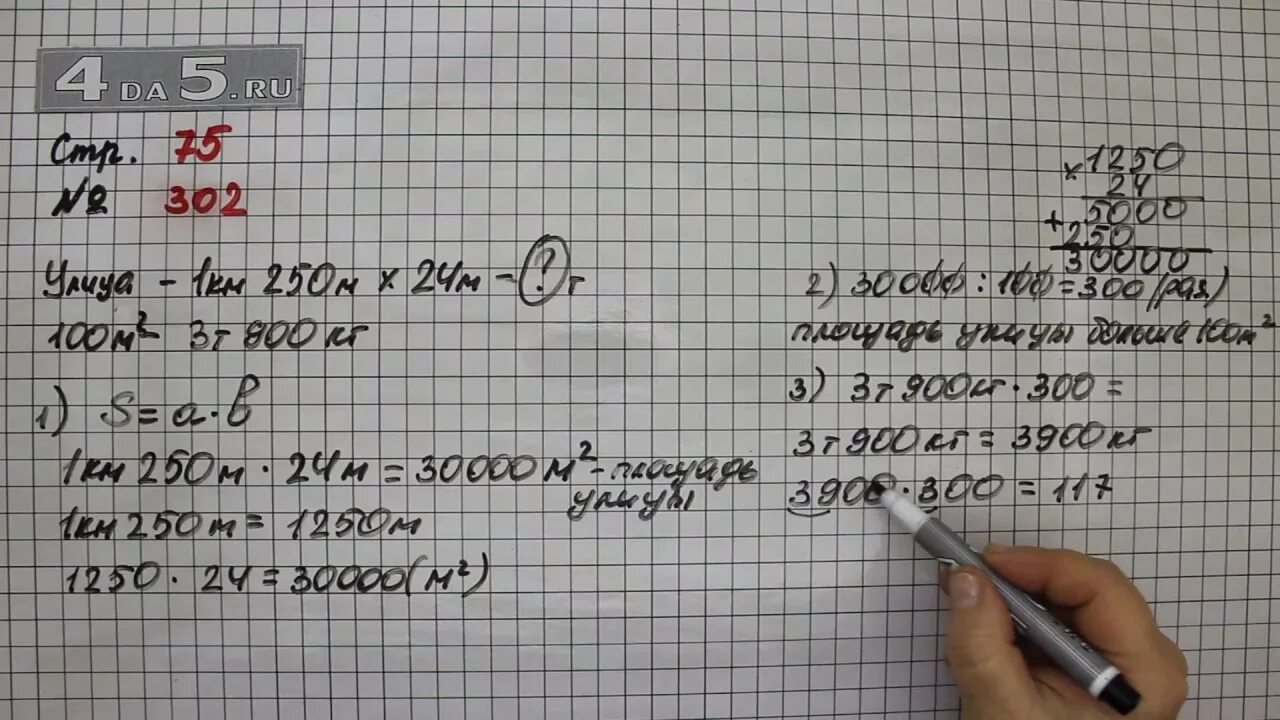 4DA5.RU
Стр. 75
№ 302
Улица - 1км 250м × 24м - ? т
100м² 3т 900 кг
1) S = a · b
1км 250м · 24м = 30000м² - площадь
улицы
1км 250м = 1250м
1250 · 24 = 30000(м²)
× 1250
24
+ 5000
250
30000
2) 30000 : 100 = 300 (раз)
площадь улицы больше 100м²
3) 3т 900кг · 300 =
3т 900кг = 3900кг
3900 · 300 = 117